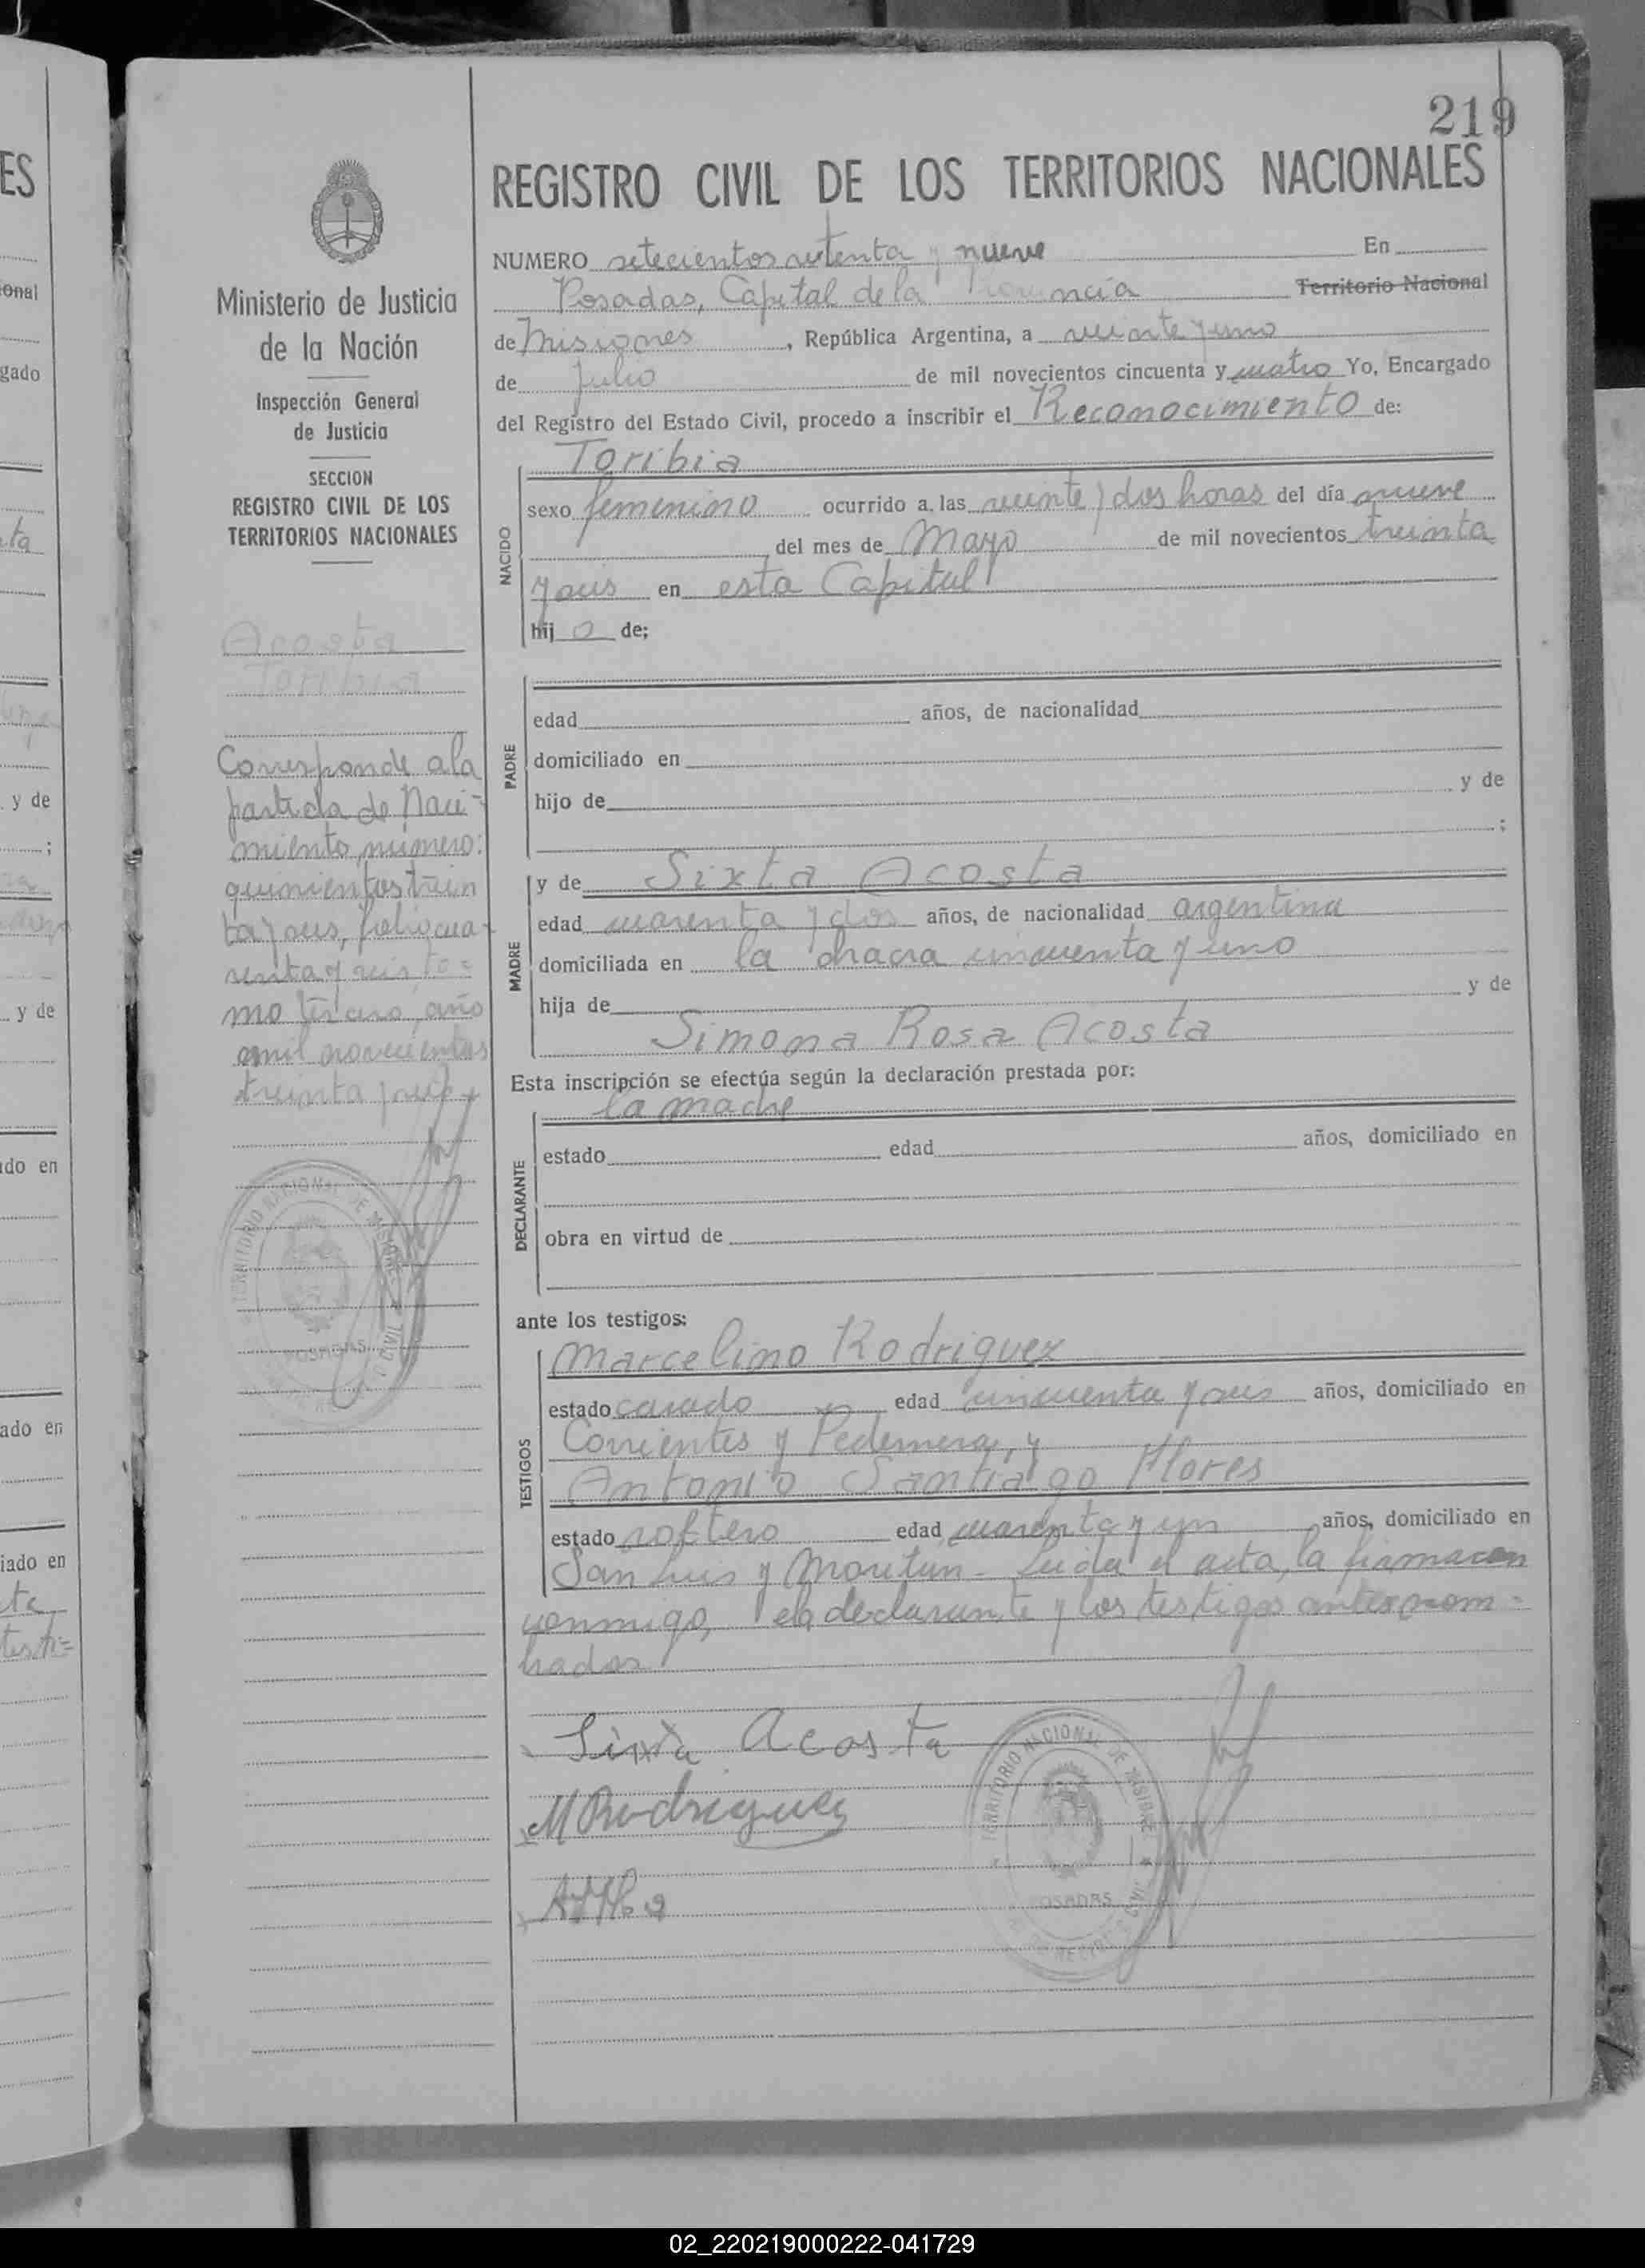 219
REGISTRO CIVIL DE LOS TERRITORIOS NACIONALES
Ministerio de Justicia
de la Nación
Inspección General
de Justicia
SECCION
REGISTRO CIVIL DE LOS
TERRITORIOS NACIONALES
Acosta
Toribia
Corresponde a la
partida de Naci-
miento, número:
quinientos trein
ta y seis, folio cua-
renta y seis, to=
mo tercero, año
mil novecientos
treinta y seis
NUMERO setecientos setenta y nueve En
Posadas, Capital de la Provincia Territorio Nacional
de Misiones, República Argentina, a veinte y uno
de Julio de mil novecientos cincuenta y cuatro Yo, Encargado
del Registro del Estado Civil, procedo a inscribir el Reconocimiento de:
NACIDO
Toribia
sexo femenino ocurrido a las veinte y dos horas del día nueve
del mes de Mayo de mil novecientos treinta
y seis en esta Capital
hij o de;
PADRE
edad años, de nacionalidad
domiciliado en
hijo de y de
;
MADRE
y de Sixta Acosta
edad cuarenta y dos años, de nacionalidad argentina
domiciliada en la chacra cincuenta y uno
hija de y de
Simona Rosa Acosta
Esta inscripción se efectúa según la declaración prestada por:
DECLARANTE
la madre
estado edad años, domiciliado en
obra en virtud de
ante los testigos:
TESTIGOS
Marcelino Rodriguez
estado casado edad cincuenta y seis años, domiciliado en
Corrientes y Pedernera, y
Antonio Santiago Flores
estado soltero edad cuarenta y un años, domiciliado en
San Luis y Moritan - Leida el acta, la firmaron
conmigo, la declarante y los testigos antes nom=
brados
Sixta Acosta
M Rodriguez
TERRITORIO NACIONAL DE MISIONES
POSADAS
TERRITORIO NACIONAL DE MISIONES
POSADAS
ES
onal
gado
y de
;
y de
ado en
ado en
iado en
testi=
02_220219000222-041729